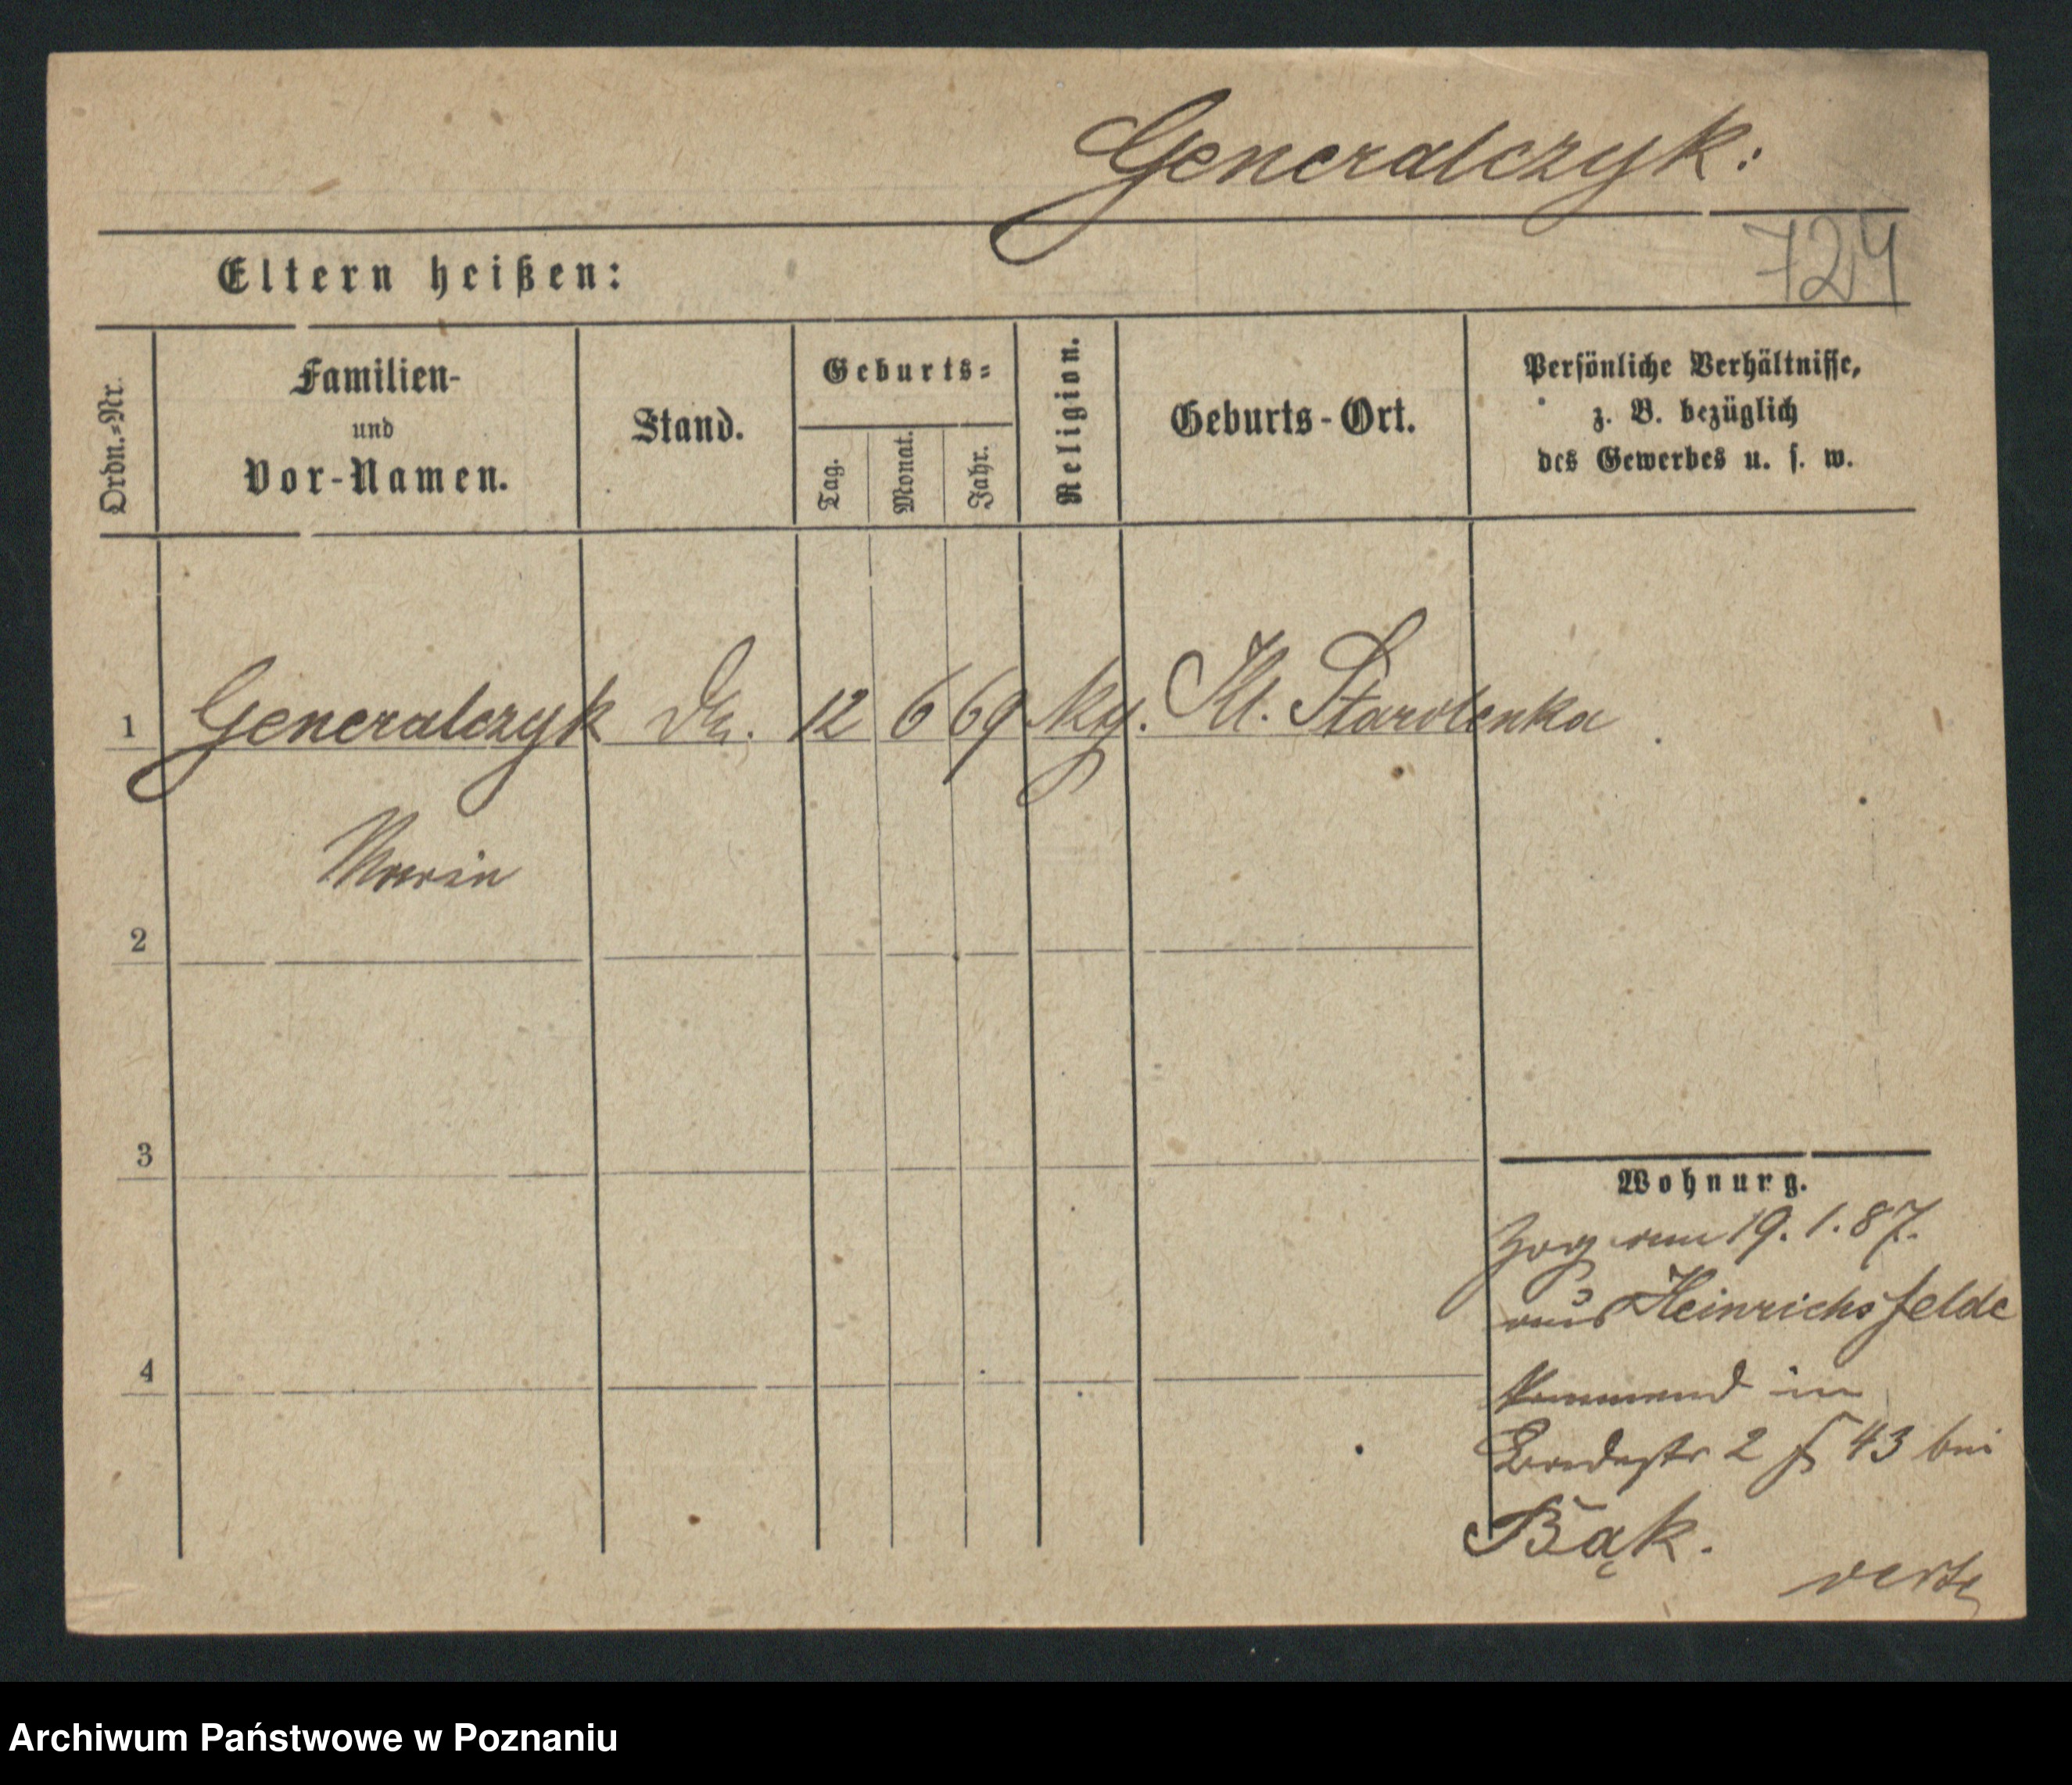 Generalczyk:
724
Eltern heißen:
Ordn.=Nr.
Familien-
und
Vor-Namen.
Stand.
Geburts=
Tag.
Monat.
Jahr.
Religion.
Geburts-Ort.
Persönliche Verhältnisse,
z. B. bezüglich
des Gewerbes u. s. w.
1 Generalczyk 12 6 69 Kg. Kl. Starolenka
Marie
2
3
4
Wohnurg.
Zog am 19.1.87.
aus Heinrichsfelde
kommend in
2 43 bei
Bąk.
verte
Archiwum Państwowe w Poznaniu